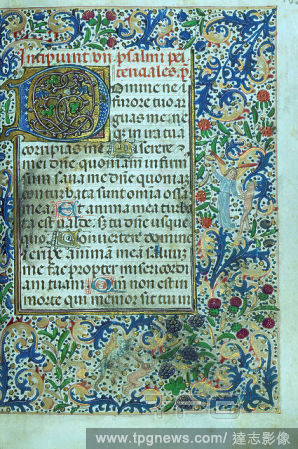 Incipiunt vii psalmi pei
tenciales p̄
Domine ne i
furore tuo ar
guas me ne
q; in ira tua
corripias me Miserere
mei dn̄e quoniam infirm
sum sana me dn̄e quoniam
conturbata sunt omnia ossa
mea Et anima mea turba
ta est valde sz tu dn̄e usque
quo Convertere domine
et eripe animā mea saluū
me fac propter misericordi
am tuam Qm̄ non est in
morte qui memor sit tui
www.tpgnews.com/ 達志影像